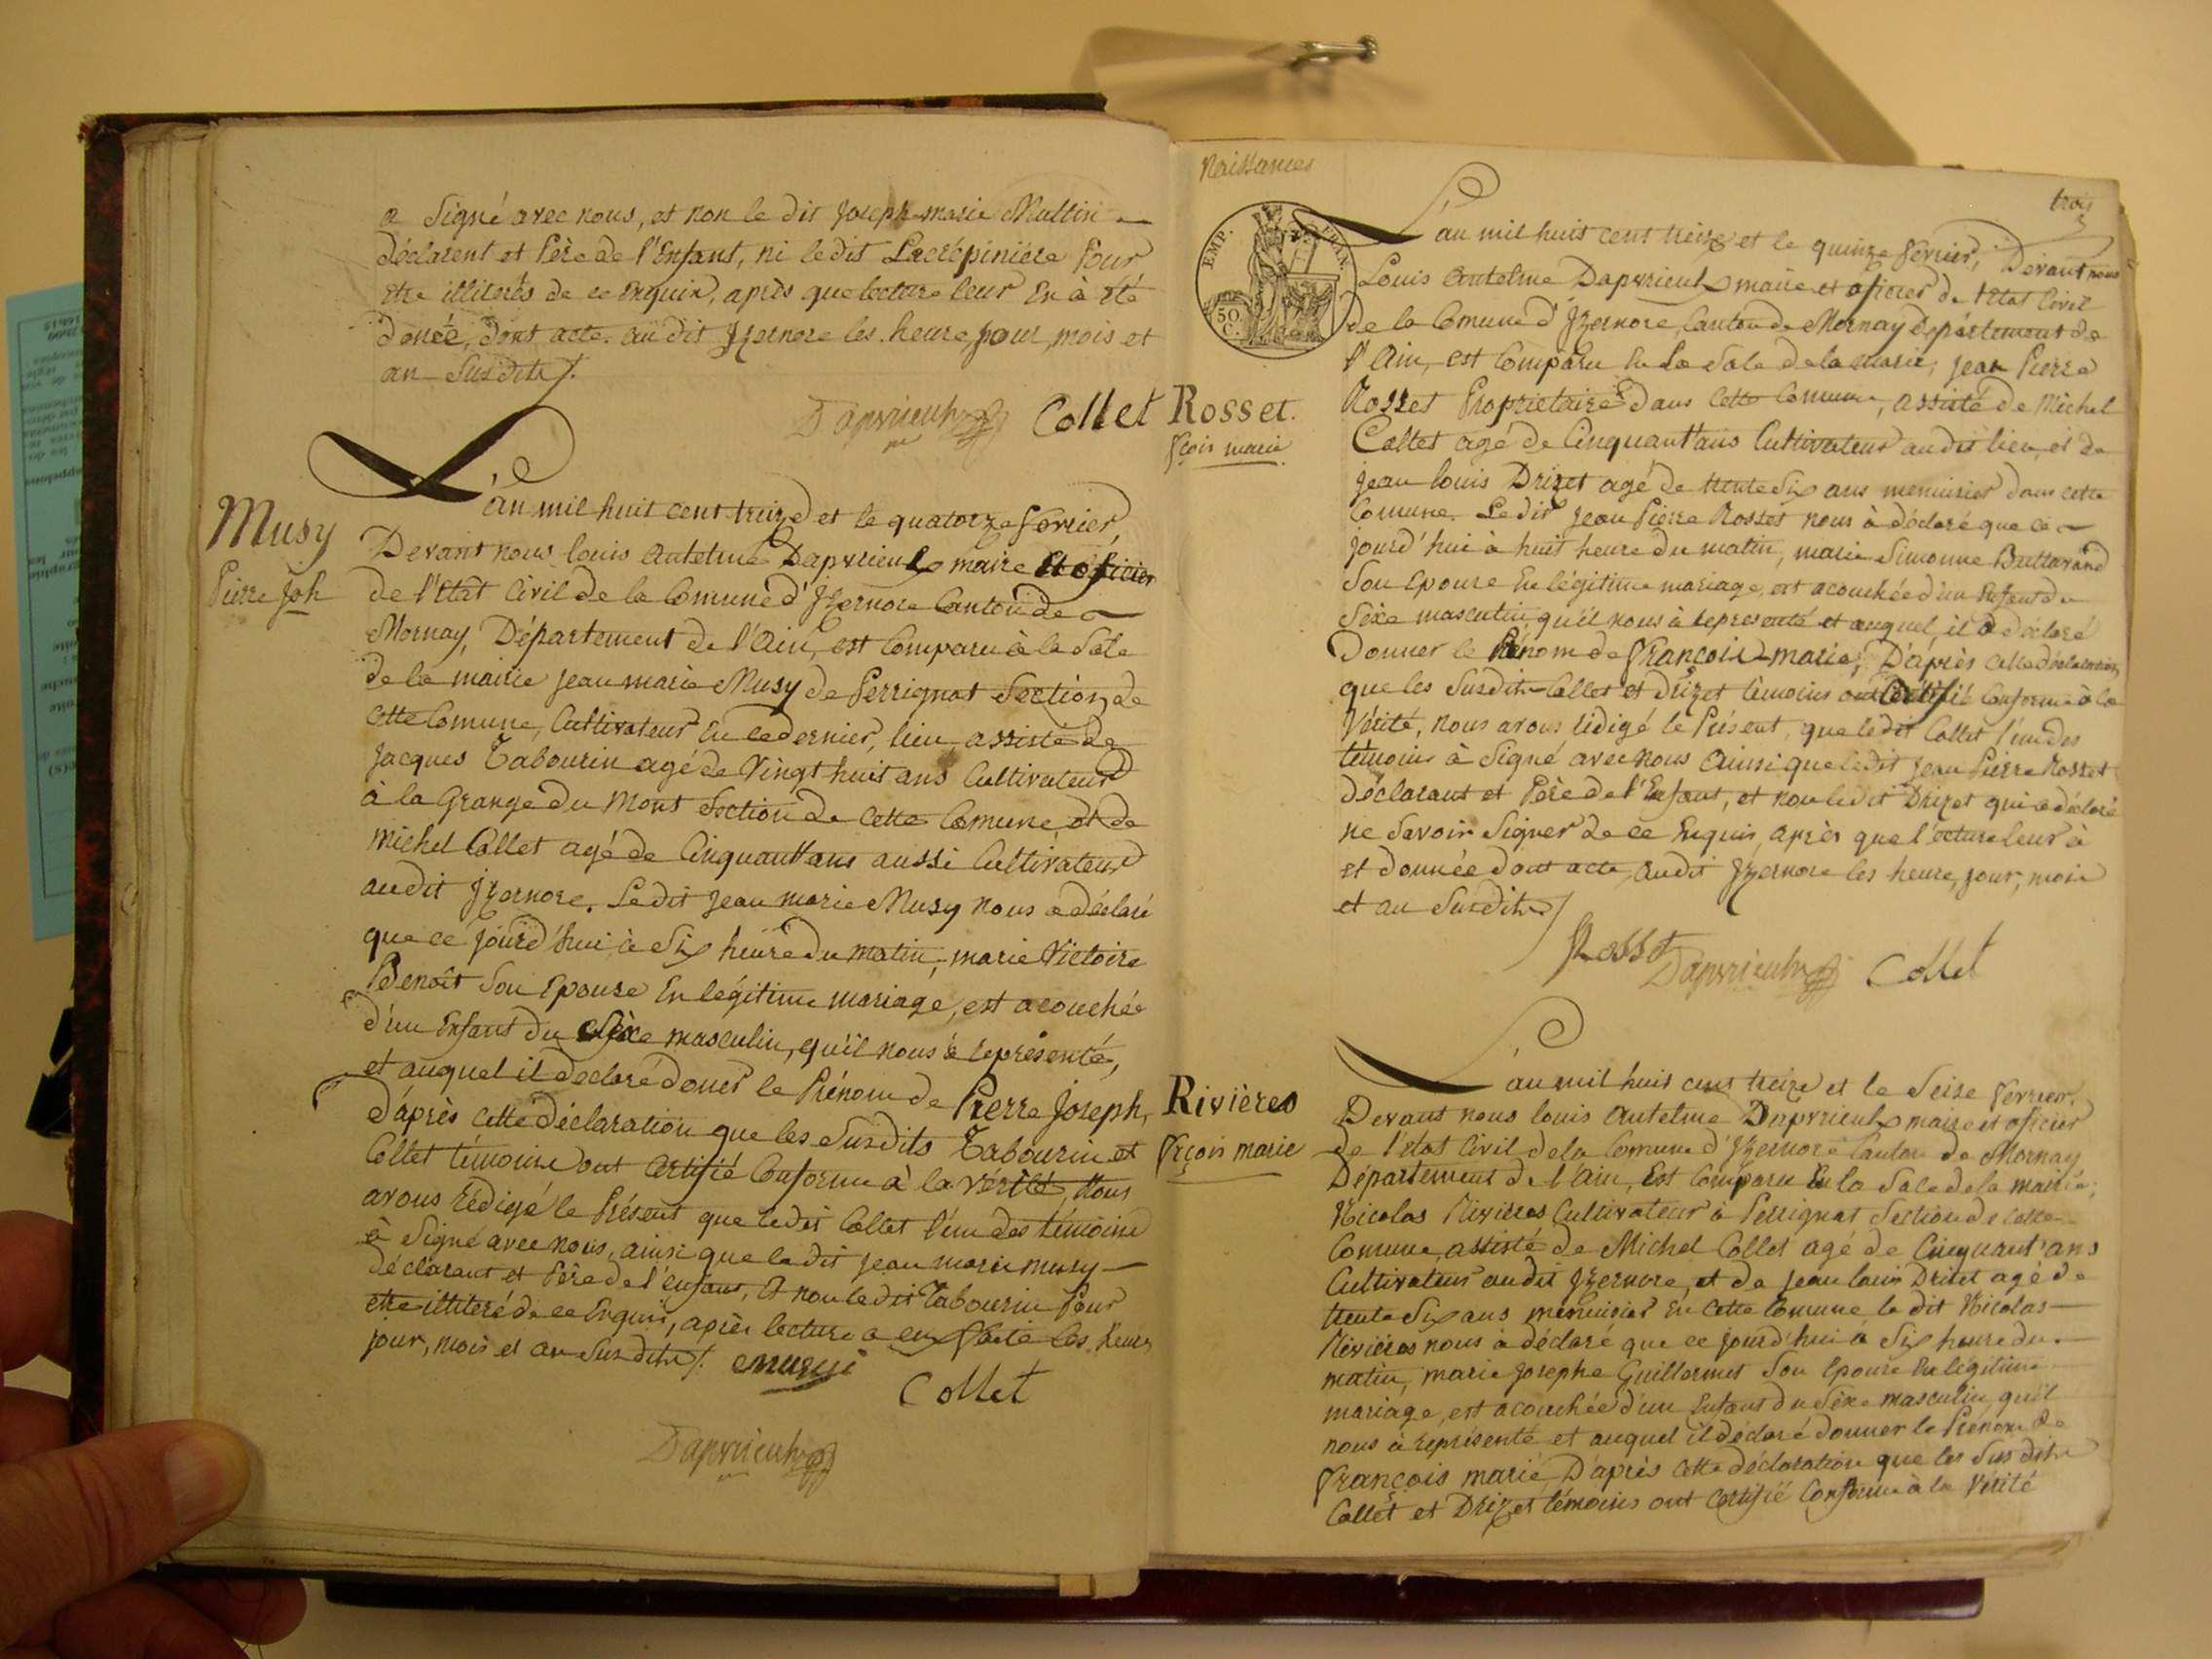 a Signé avec nous, et non le dit Joseph-marie Mullin
déclarent et Père de l'Enfant, ni le dit Lacrépinière Pour
etre illiterés de ce Enquin, après que lecture leur En à été
donéé, dont acte. au dit Jzernore les heure, jour, mois et
an Susdits /.
Dapvrieulx Collet
Musy
Pierre Joh
L'an mil huit cent treize et le quatorze fevrier,
Devant nous louis antelme Dapvrieulx maire et oficier
de l'Etat Civil de la Comune d'Jzernore Canton de
Mornay, Département de l'Ain, est Comparu à la Sale
de la mairie jean marie Musy de Perrignat Section de
cette Comune, Cultivateur En ce dernier, lieu, assisté de
Jacques Tabourin agé de Vingt huit ans Cultivateur
à la Grange du Mont Section de Cette Comune, et de
michel Collet agé de Cinquant'ans aussi Cultivateur
au dit Jzernore. Le dit jean marie Musy nous à déclaré
que ce jourd'hui à Six heure du matin, marie Victoire
Benoît Son Epouse En légitime mariage, est acouchée
d'un Enfant du Sèxe masculin, qu'il nous à représenté,
et auquel il déclaré doner le Prénom de Pierre Joseph,
D'après cette déclaration que les Susdits Tabourin et
Collet témoins ont Certifié Conforme à la vérité, Nous
avons rédigé le Présent que le dit Collet l'un des témoins
à Signé avec nous, ainsi que le dit jean marie musy
déclarant et Père de l'enfant, Et non le dit Tabourin Pour
etre illiteré de ce Enquis, après lecture a eux faite les heure
jour, mois et an Susdits /. musy
Collet
Dapvrieulx
Naissances
trois
3
EMP. FRAN.
50 C.
Rosset.
fçois marie
L'au mil huit cent treize et le quinze fevrier, Devant nous
Louis antelme Dapvrieulx maire et oficier de l'état Civil
de la Comune d'Jzernore, Canton de Mornay département de
l'Ain, est Comparu En La Sale de la mairie, jean Pierre
Rosset Proprietaire dans Cette Comune, assisté de Michel
Collet agé de Cinquant'ans Cultivateur au dit lieu, et de
jean louis Drizet agé de trente Six ans menuisier dans cette
Comune. Le dit jean Pierre Rosset nous à déclaré que ce
jourd'hui à huit heure du matin, marie Simonne
Son Epouse En légitime mariage, est acouchée d'un Enfant du
Sèxe masculin, qu'il nous à représenté et auquel il a déclaré
Donner le Prénom de François-marie, D'après cette déclaration,
que les Susdits Collet et Drizet témoins ont Certifié Conforme à la
Vérité, nous avons rédigé le Présent, que le dit Collet l'un des
témoins à Signé avec nous Ainsi que le dit jean Pierre Rosset
déclarant et Père de l'Enfant, et non le dit Drizet qui a déclaré
ne Savoir Signer de ce Enquis, après que l'ecture leur à
et donnée dont acte, au dit Jzernore les heure, jour, mois
et an Susdits /
Rosset Dapvrieulx Collet
Rivières
frçois marie
L'au mil huit cent treize et le Seize fevrier,
Devant nous louis antelme Dapvrieulx maire et oficier
de l'état Civil de la Comune d'Jzernore Canton de Mornay
Département de l'Ain, Est Comparu En la Sale de la mairie,
Nicolas Rivières Cultivateur à Perrignat Section de Cette
Comune, assisté de Michel Collet agé de Cinquant'ans
Cultivateur au dit Jzernore, et de jean louis Drizet agé de
trente Six ans menuisier En cette Comune le dit Nicolas
Rivières nous à déclaré que ce jourd'hui à Six heure du
matin, marie Josephe Guillermet Son Epouse En légitime
mariage, est acouchée d'un Enfant du Sèxe masculin, qu'il
nous à représenté et auquel il déclaré donner le Prénom de
François marie, D'après cette déclaration que les Susdits
Collet et Drizet témoins ont Certifié Conforme à la Vérité